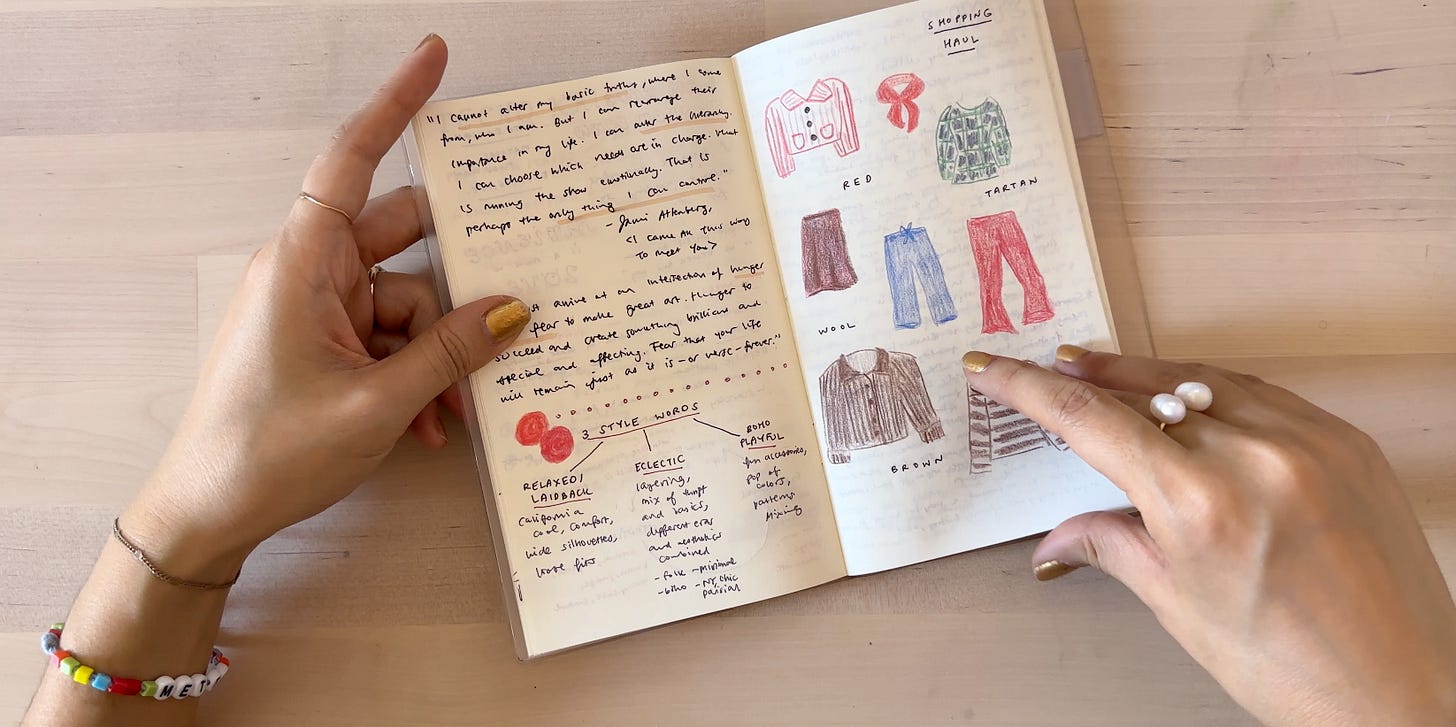 "I cannot alter my basic truths, where I come
from, who I am. But I can rearrange their
importance in my life. I can alter the hierarchy.
I can choose which needs are in charge. What
is running the show emotionally. That is
perhaps the only thing I can control."
- Jami Attenberg,
<I came all this way
to meet you>
arrive at an intersection of hunger
fear to make great art. Hunger to
succeed and create something brilliant and
special and affecting. Fear that your life
will remain just as it is - or worse - forever."
3 STYLE WORDS
RELAXED/
LAIDBACK
California
cool, comfort,
wide silhouettes,
loose fits
ECLECTIC
layering,
mix of thrift
and basics,
different eras
and aesthetics
combined
- folk - minimal
- boho - NY chic
parisian
BOHO
PLAYFUL
fun accessories,
pop of
colors,
patterns
mixing
SHOPPING
HAUL
RED
TARTAN
WOOL
BROWN
MET